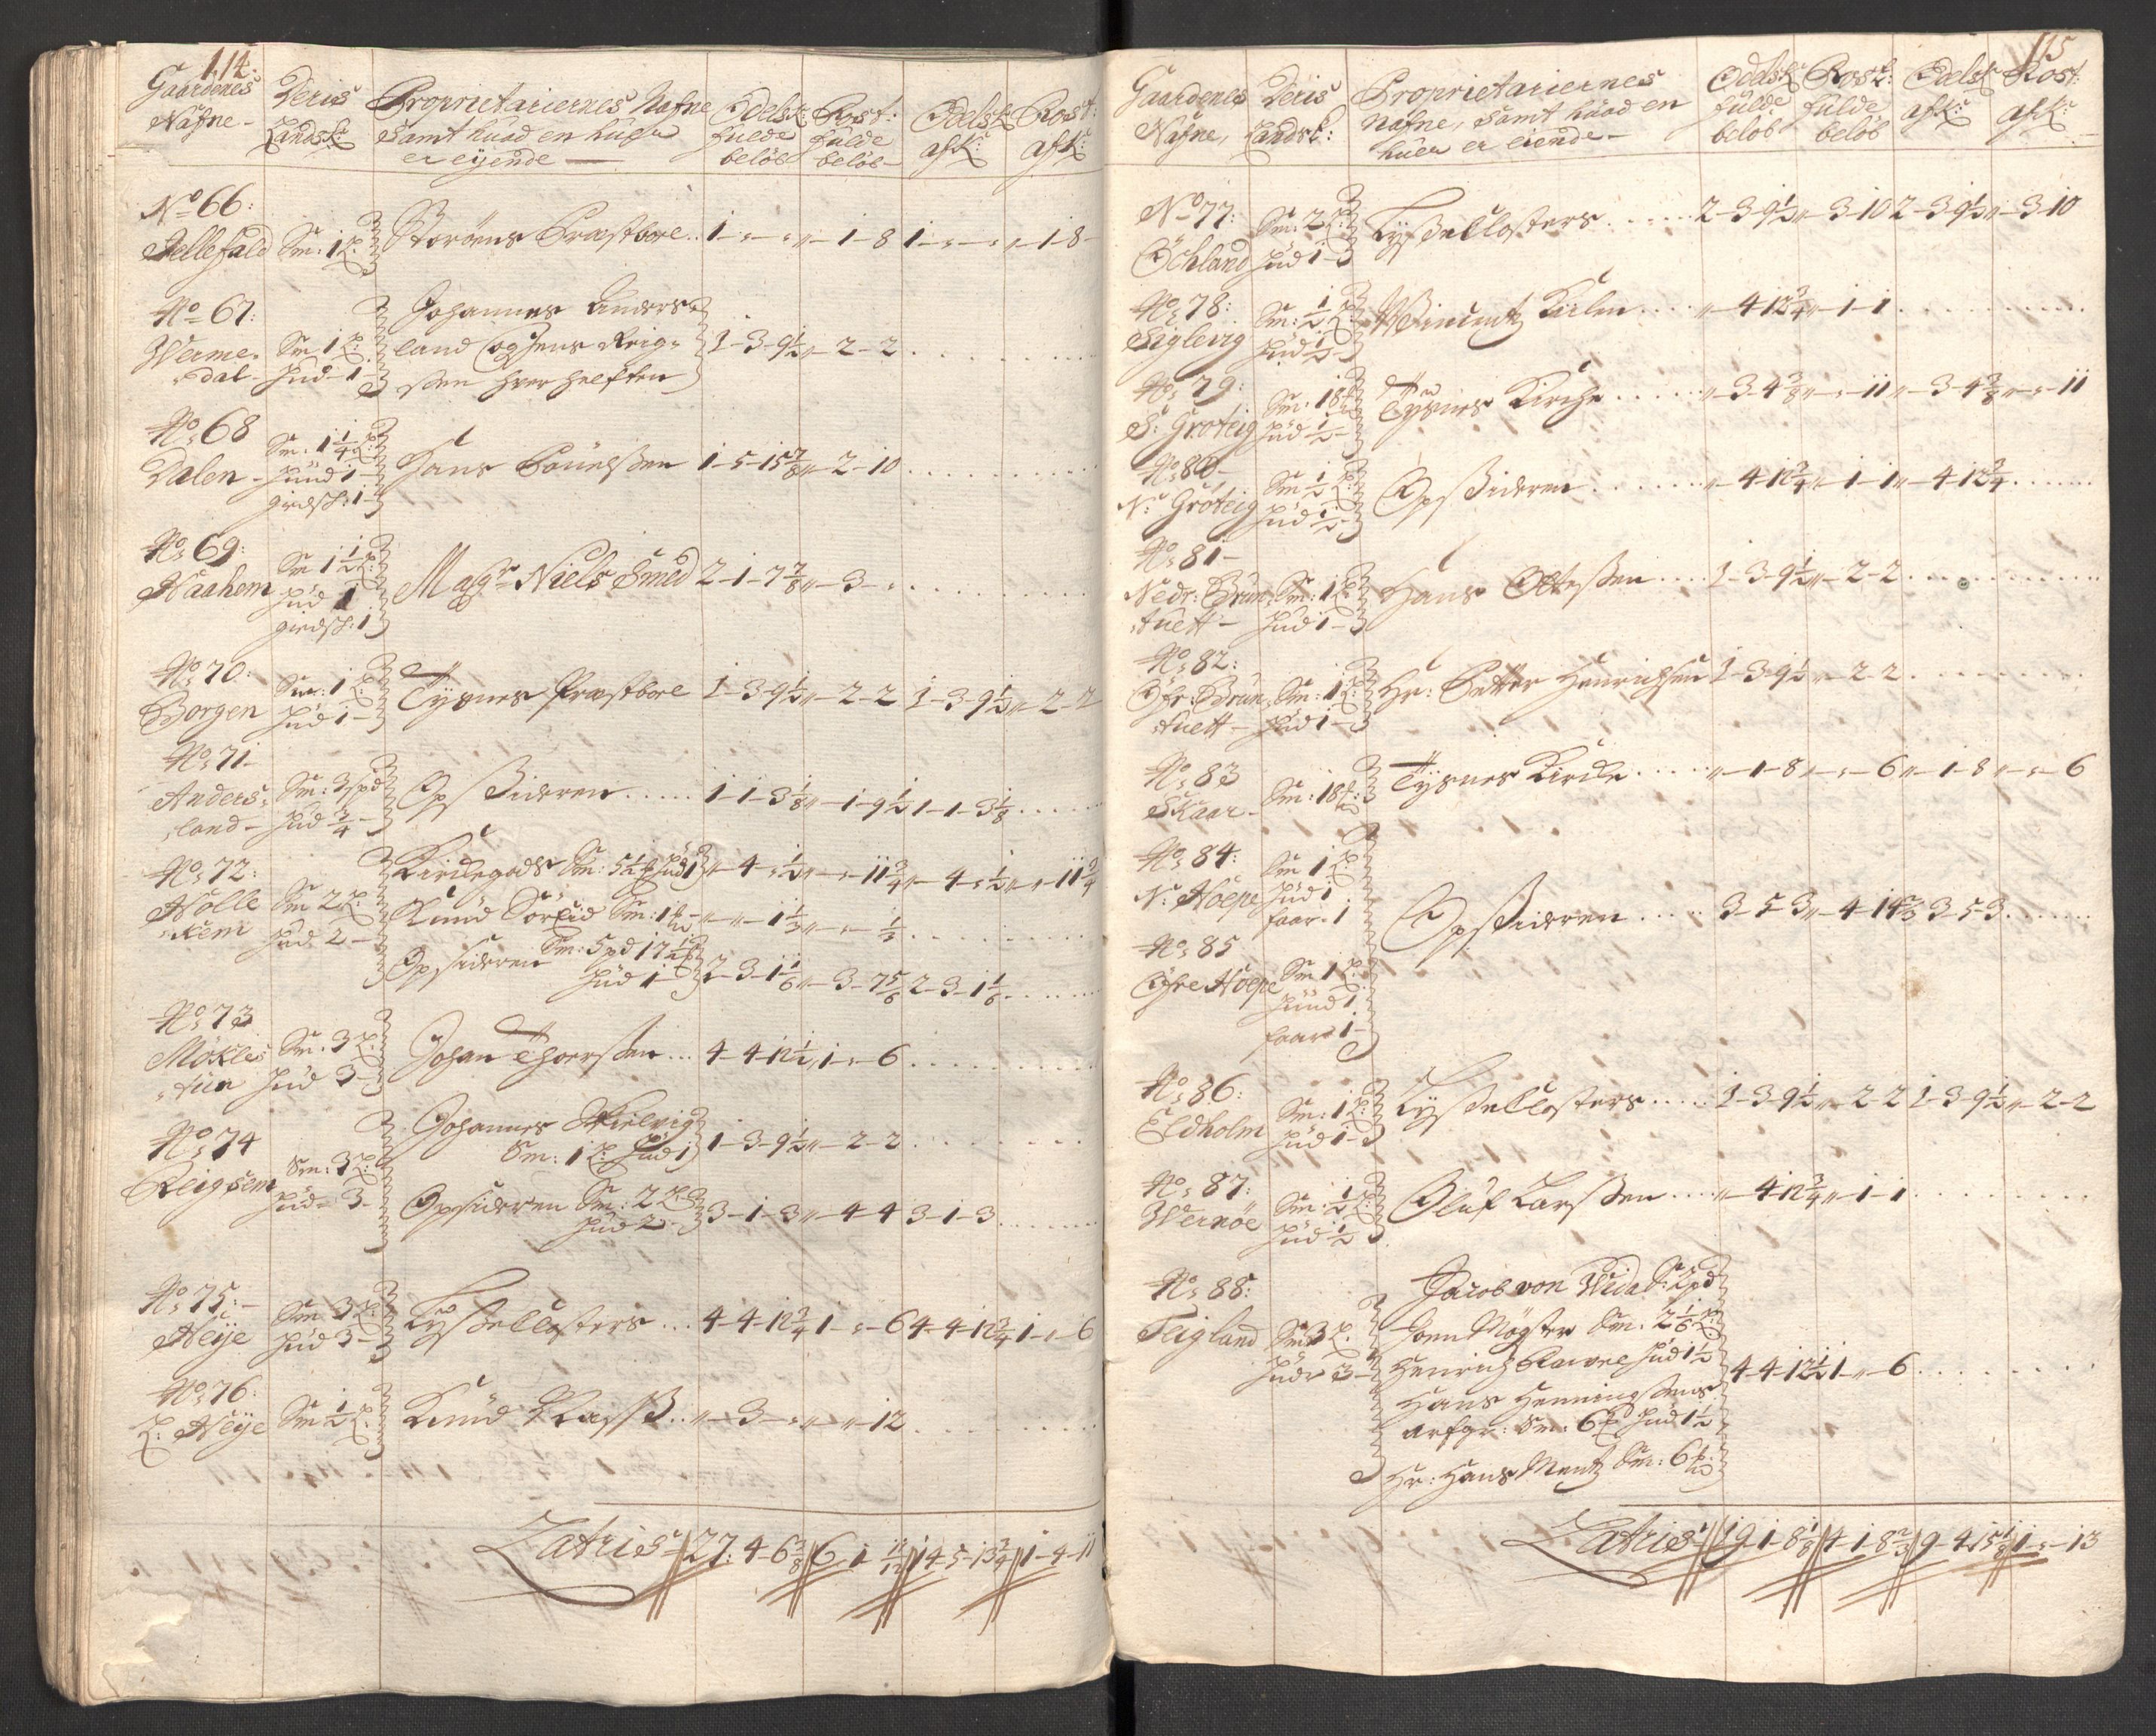 114.
Gaardenes Nafne - Deris Landsk: Proprietariernes Nafne Samt huad en huer er eijende — Odelsk: fulde beløb Rost: fulde beløb Odelsk afk: Rost: afk:
No 66: Sm: 1 Storøens Præstbore .. 1 - „ - „ „ - 1 - 8 1 - „ - „ „ - 1 - 8 -
No 67:
Johannes Anders-
Werme- Sm 1 land og Jens Reig- 1-3-9½ „-2-2
dal - Hud - 1 - ssen hver helften
No 68
Sm: 1¼
Dalen - Hund 1 - Hans Pouelssen 1-5-15⅞ „-2-10
giedsk: 1 -
No 69:
Sm 1½
Naahem Hud 1 Magr Niels Smed 2-1-7⅞ „-3-„
giedsk: 1
No 70:
Sm: 1
Borgen Hud 1 - Tysnes Præstbore 1-3-9½ „-2-2 1-3-9½ „-2-2
No 71 -
Anders- Sm: 3 spd Opsideren ..... 1-1-3⅛ „-1-9½ 1-1-3⅛
land - Hud ¾ -
No 72: Kirkegods Sm: 5½ Hud 1 „-4-½ „-„-11¾ „-4-½ „-„-11¾
Sm 2 Knud Sørlid Sm: 1 „-„-1⅓ „-„-⅓
kem Hud 2 - Opsideren Sm: 5 pd 17½
Hud 1 - 2-3-1⅙ „-3-7⅚ 2-3-1⅙
No 73
Møkles- Sm: 3 Johan Thorssen ... 4-4-12½ 1-„-6
tun Hud 3 -
No 74
Johannes
Sm: 1 Hud 1 1-3-9½ „-2-2
Reigsem Sm: 3
Hud - 3 - Opsideren Sm: 2
Hud 2 - 3-1-3 „-4-4 3-1-3
No 75: -
Sm 3
Neije Hud 3 - Lysseclosters ... 4-4-12¾ 1-„-6 4-4-12¾ 1-„-6
No 76:
L: Neije Sm ½ Knud .. „-3-„ „-„-12
Latris 27: 4-6⅜ 6 1 11/12 14-5-13¾ 1-4-11
115
Gaardenes Nafne, Deris Landsk: Proprietariernes Nafne, Samt huad en huer er eiende - Odelsk fulde beløb Rosk: fulde beløb Odelsk afk: Rost: afk:
No 77:
Sm: 2
Øchland Hud 1 - Lysseclosters ..... 2-3-9½ „-3-10 2-3-9½ „-3-10
No 78:
Sm: ½
Siglevig Hud ½ - .... „-4-12¾ „-1-1
No 79:
Sm: 18
S: Grøteig Hud ½ - Tysnes Kirche ..... „-3-4⅜ „-„-11 „-3-4⅜ „-„-11
No 80 -
Sm ½
N: Grøteig Hud ½ - Opsideren ...... „-4-12¾ „-1-1 „-4-12¾
No 81 -
Nedr: Brun- Sm: 1 Hans Ottessen .... 1-3-9½ „-2-2
tuett - Hud 1 -
No 82:
Øfr: Brun- Sm: 1 Hr: Petter Henrichsen 1-3-9½ „-2-2
tuett - Hud 1 -
No 83
Skaar - Sm: 18 Tysnes Kirche ..... „-1-8 „-„-6 „-1-8 „-„-6
No 84:
Sm 1
N: Høepe Hud 1
faar - 1 Opsideren ..... 3-5-3 „-4-14⅔ 3-5-3
No 85
Øfre Høepe Sm 1
Hund 1
faar 1 -
No 86:
Sm: 1
Eldholm Hud 1 - Lysseclosters ..... 1-3-9½ „-2-2 1-3-9½ „-2-2
No 87:
Sm: ½
Wernøe Hud ½ Oluf Larssen .... „-4-12¾ „-1-1
No 88:
Jacob von Wida S: 2 pd
Teigland Sm: 3 Joen Møgster Sm: 2⅙
Hude 3 - Henrich Hud 1½ 4-4-12½ 1-„-6
Hans Henningssens
arfgr: Sm: 6 Hud 1½
Hr: Hans Mentz Sm: 6
Latris 19 1-8⅛ 4-1-8⅔ 9-4-15⅛ 1-„-13